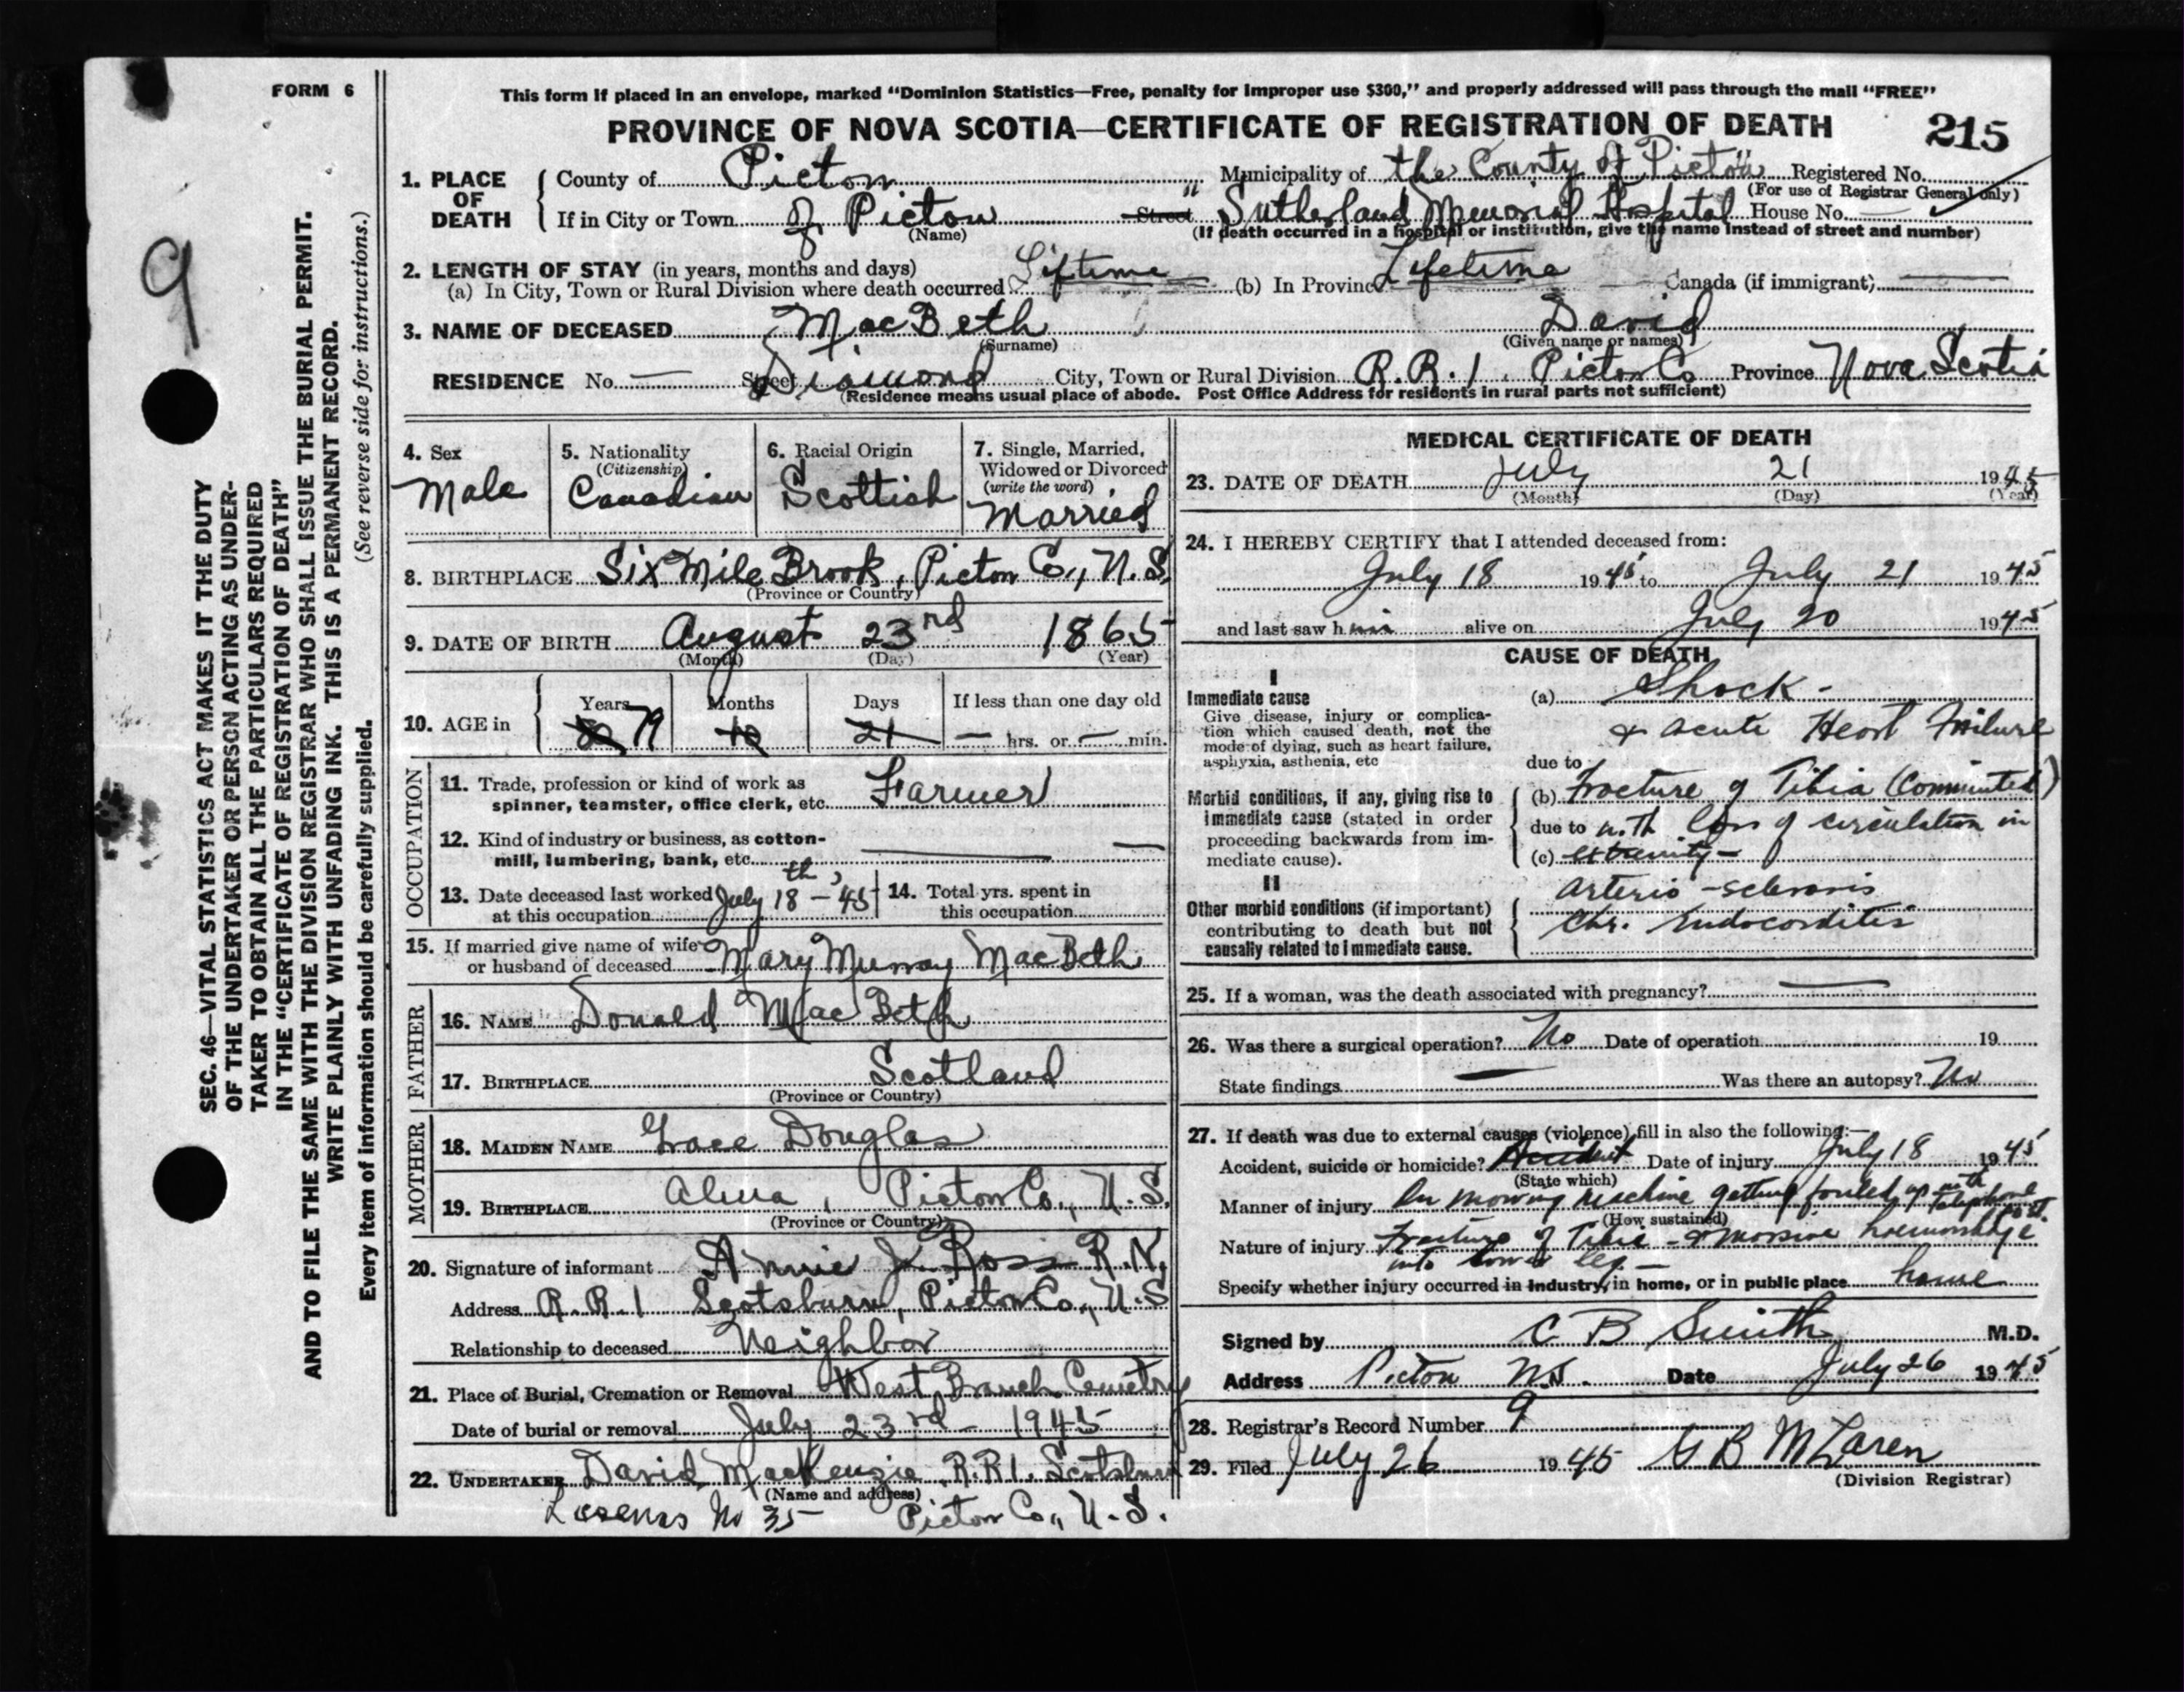 FORM 6
This form if placed in an envelope, marked "Dominion Statistics—Free, penalty for improper use $300," and properly addressed will pass through the mail "FREE"
PROVINCE OF NOVA SCOTIA—CERTIFICATE OF REGISTRATION OF DEATH 215
9
SEC. 46—VITAL STATISTICS ACT MAKES IT THE DUTY
OF THE UNDERTAKER OR PERSON ACTING AS UNDER-
TAKER TO OBTAIN ALL THE PARTICULARS REQUIRED
IN THE "CERTIFICATE OF REGISTRATION OF DEATH"
AND TO FILE THE SAME WITH THE DIVISION REGISTRAR WHO SHALL ISSUE THE BURIAL PERMIT.
WRITE PLAINLY WITH UNFADING INK. THIS IS A PERMANENT RECORD.
(See reverse side for instructions.)
Every item of information should be carefully supplied.
1. PLACE OF DEATH
County of Pictou Municipality of the County of Pictou Registered No.
(For use of Registrar General only)
If in City or Town of Pictou Street "Sutherland Memorial Hospital" House No. —
(Name) (If death occurred in a hospital or institution, give the name instead of street and number)
2. LENGTH OF STAY (in years, months and days)
(a) In City, Town or Rural Division where death occurred Liftime (b) In Province Lifetime Canada (if immigrant) —
3. NAME OF DECEASED MacBeth David
(Surname) (Given name or names)
RESIDENCE No. — Street Diamond City, Town or Rural Division R.R.1. Pictou Co Province Nova Scotia
(Residence means usual place of abode. Post Office Address for residents in rural parts not sufficient)
4. Sex
Male
5. Nationality
(Citizenship)
Canadian
6. Racial Origin
Scottish
7. Single, Married,
Widowed or Divorced
(write the word)
Married
8. BIRTHPLACE Six Mile Brook, Pictou Co., N.S.
(Province or Country)
9. DATE OF BIRTH August 23rd 1865
(Month) (Day) (Year)
10. AGE in
Years Months Days If less than one day old
80 79 10 21 — hrs. or — min.
OCCUPATION
11. Trade, profession or kind of work as
spinner, teamster, office clerk, etc. Farmer
12. Kind of industry or business, as cotton-
mill, lumbering, bank, etc. —
13. Date deceased last worked
at this occupation July 18th - 45
14. Total yrs. spent in
this occupation
15. If married give name of wife
or husband of deceased Mary Murray MacBeth
FATHER
16. NAME Donald MacBeth
17. BIRTHPLACE Scotland
(Province or Country)
MOTHER
18. MAIDEN NAME Grace Douglas
19. BIRTHPLACE Alma, Pictou Co., N.S.
(Province or Country)
20. Signature of informant Annie J. Ross R.N.
Address R.R.1 Scotsburn, Pictou Co., N.S
Relationship to deceased Neighbor
21. Place of Burial, Cremation or Removal West Branch Cemetry
Date of burial or removal July 23rd - 1945
22. UNDERTAKER David MacKenzie R.R1. Scotsburn
(Name and address)
No 35 Pictou Co., N.S.
MEDICAL CERTIFICATE OF DEATH
23. DATE OF DEATH July 21 1945
(Month) (Day) (Year)
24. I HEREBY CERTIFY that I attended deceased from:
July 18 1945 to July 21 1945
and last saw him alive on July 20 1945
CAUSE OF DEATH
I
Immediate cause
Give disease, injury or complica-
tion which caused death, not the
mode of dying, such as heart failure,
asphyxia, asthenia, etc
(a) Shock -
& acute Heart Failure
due to
Morbid conditions, if any, giving rise to
immediate cause (stated in order
proceeding backwards from im-
mediate cause).
(b) Fracture of Tibia (Comminuted)
due to with loss of circulation in
(c) extremity -
II
Other morbid conditions (if important)
contributing to death but not
causally related to immediate cause.
Arterio-sclerosis
Chr. Endocarditis
25. If a woman, was the death associated with pregnancy? —
26. Was there a surgical operation? No Date of operation 19
State findings — Was there an autopsy? No
27. If death was due to external causes (violence) fill in also the following:—
Accident, suicide or homicide? Accident Date of injury July 18 1945
(State which)
Manner of injury In mowing machine getting fouled up with telephone post.
(How sustained)
Nature of injury Fracture of Tibia - & massive haemorrhage
into lower leg -
Specify whether injury occurred in industry, in home, or in public place home
Signed by C B Smith M.D.
Address Pictou N.S. Date July 26 1945
28. Registrar's Record Number 9
29. Filed July 26 1945 G B McLaren
(Division Registrar)